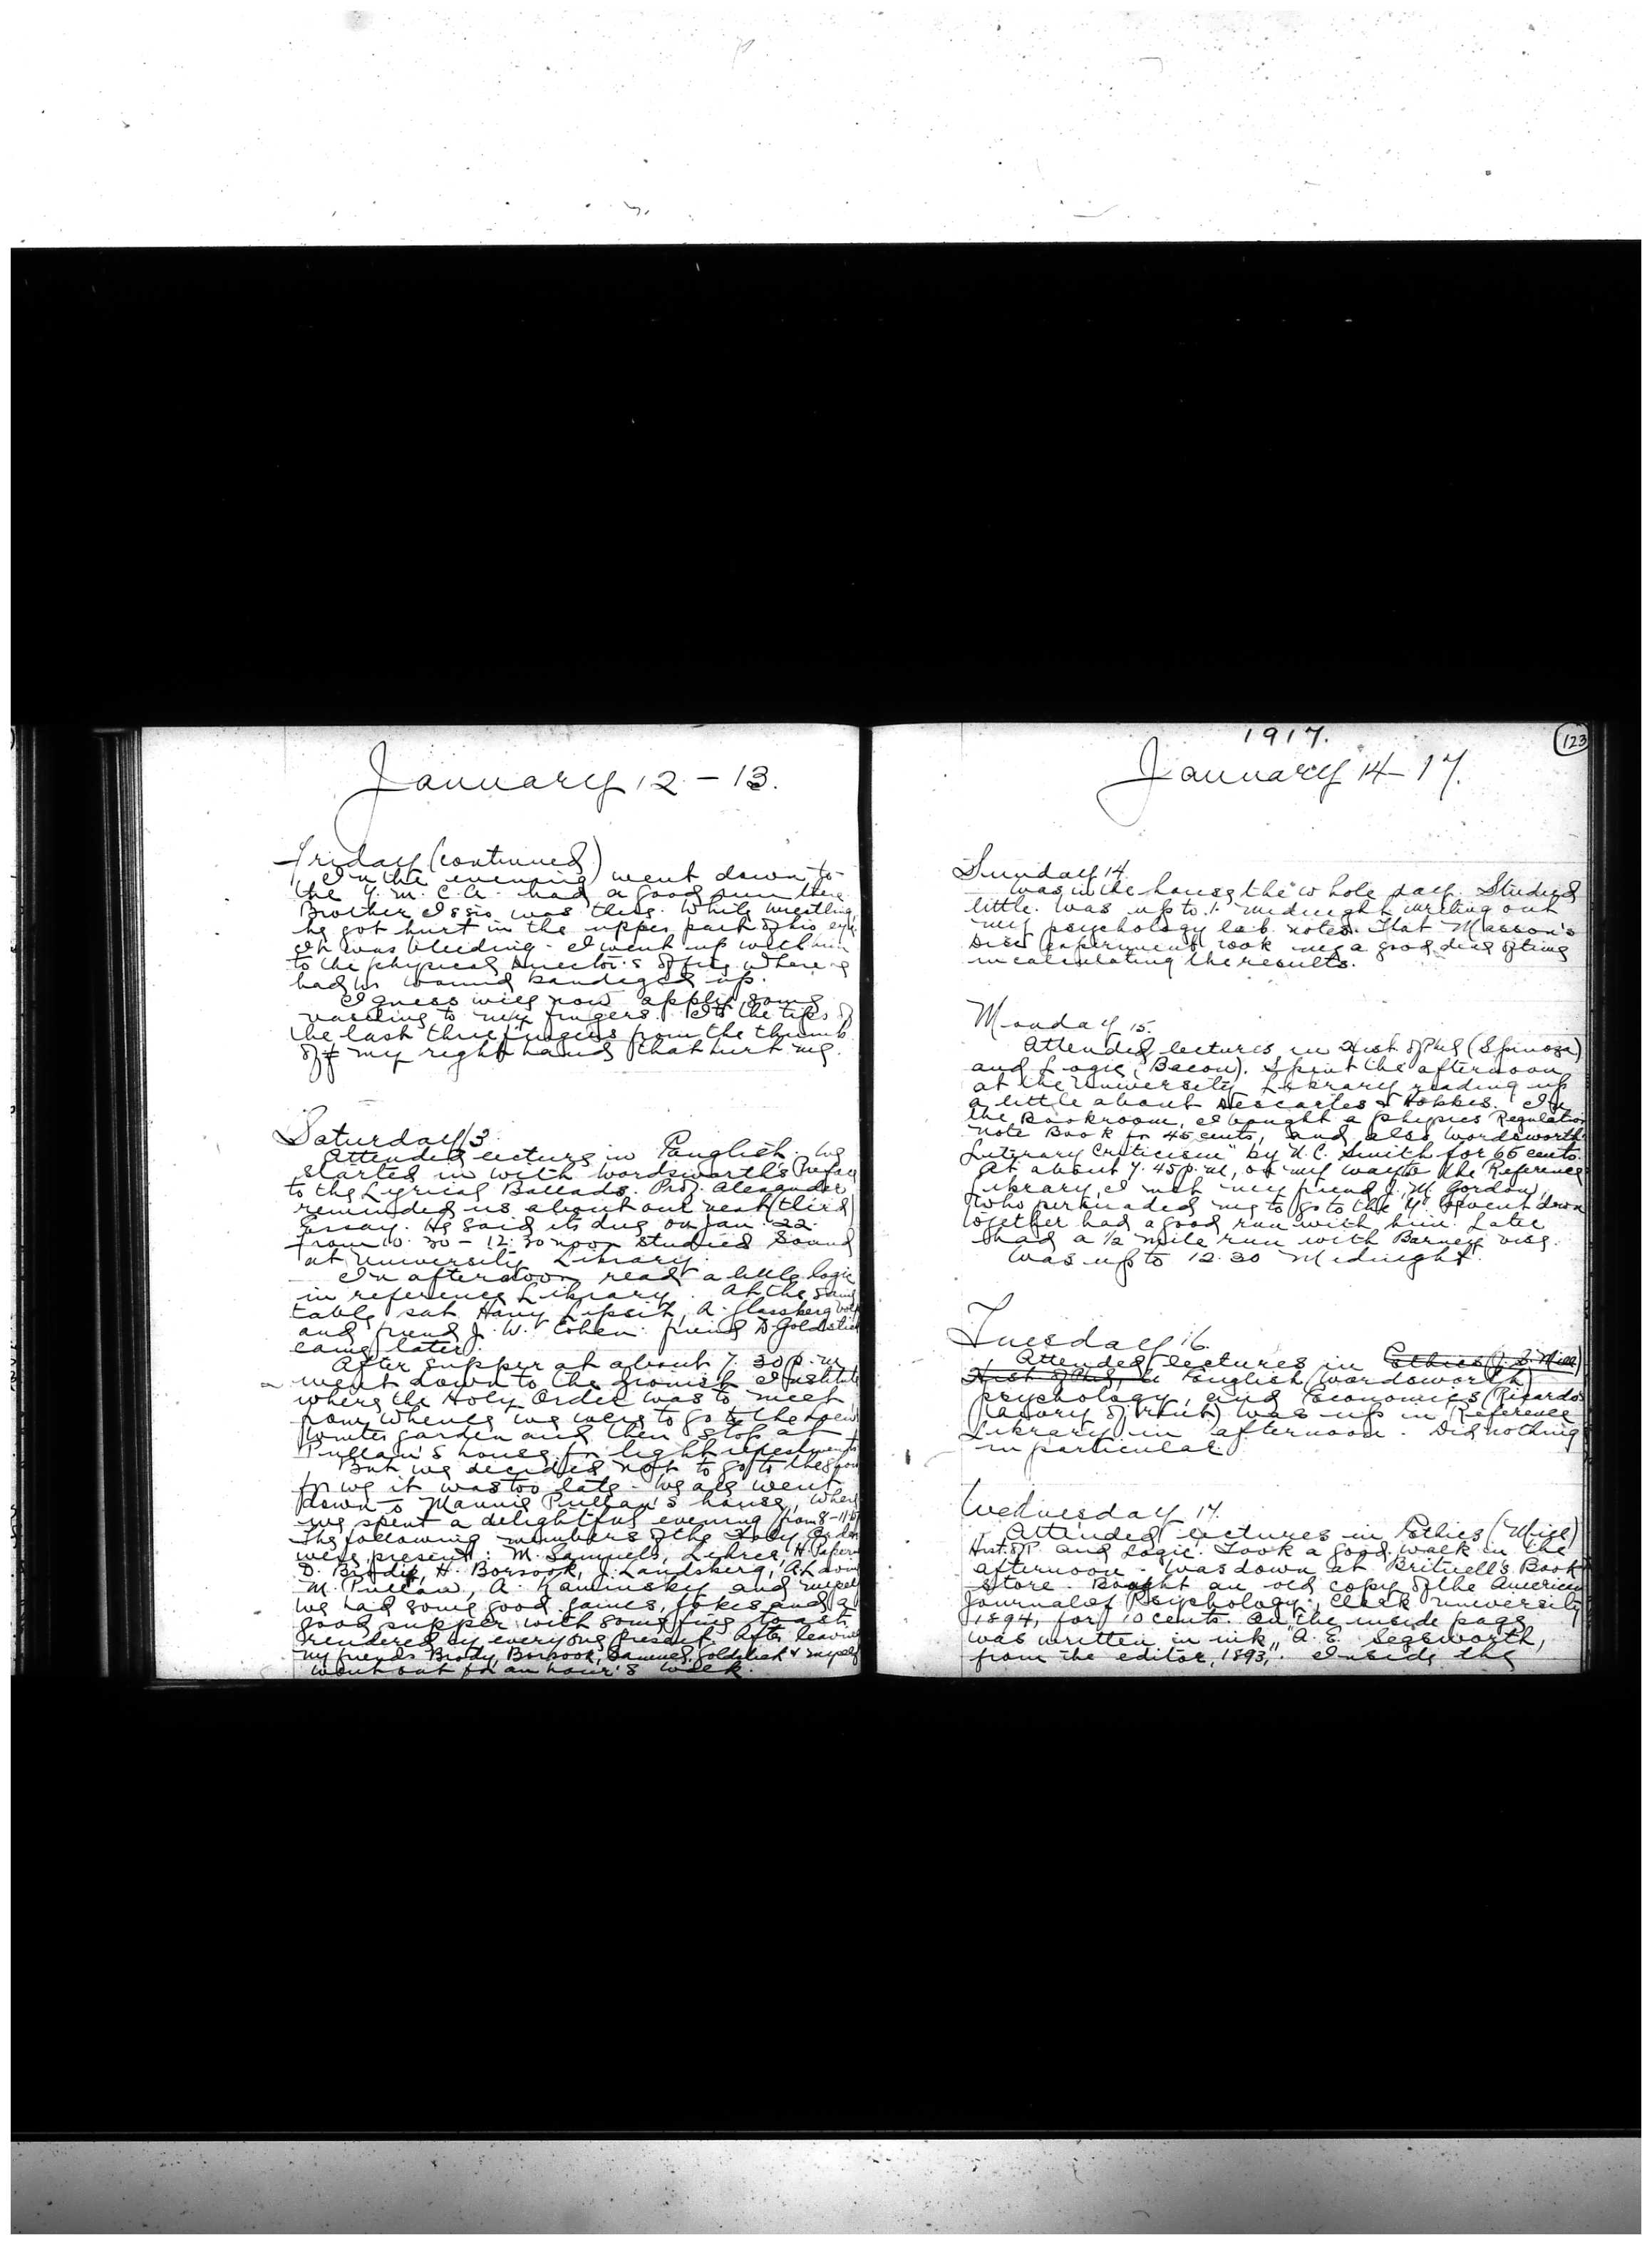 January 12 - 13.
Friday (continued)
In the evening went down to
the Y. M. C. A. had a good run there.
Brother Issie was there. While wrestling
he got hurt in the upper part of his eye.
It was bleeding. I went up with him
to the physical director's office where he
had his wound bandaged up.
I guess will now apply some
vaseline to my fingers. It's the tips of
the last three fingers from the thumb
off my right hand that hurt me.
Saturday 13.
Attended lecture in English. We
started in with Wordsworth's Preface
to the Lyrical Ballads. Prof. Alexander
reminded us about our next (third)
Essay. He said its due on Jan. 22.
From 10.30 - 12.30 noon studied Sound
at University Library.
In afternoon read a little logic
in reference Library. At the same
table sat Harry Lipsitz, A. Glassberg
and friend J. W. Cohen. friend D Goldstick
came later.
After supper at about 7.30 p.m.
went down to the Zionist Institute
where the Holy Order was to meet
from whence we were to go to the Loew's
Winter garden and then stop at
Pullan's house for light refreshments
But we decided not to go to the show
for we it was too late. We all went
down to Mannie Pullan's house, where
we spent a delightful evening from 8 - 11
The following members of the Holy Order
were present: M. Samuels, Lehrer, H. Papern
D. Brodie, H. Borsook, J. Landsberg,
M. Pullan, A. Kaminsky and myself
We had some good games, jokes and a
good supper with some fine toasts
rendered by everyone present. After leaving
my friends Brody, Borsook, Samuels, Goldstick & myself
went out for an hour's walk.
1917.
123
January 14 - 17.
Sunday 14.
Was in the house the whole day. Studied
little. Was up to 1. midnight writing out
my psychology lab. notes. That Masson's
Disc experiment took me a good deal of time
in calculating the results.
Monday 15.
Attended lectures in Hist of Phil (Spinoza)
and Logic (Bacon). Spent the afternoon
at the University Library reading up
a little about Descartes & Hobbes. In
the Bookroom, I bought a physics Regulation
Note Book for 45 cents, and also Wordsworth's
Literary Criticism" by N. C. Smith for 65 cents.
At about 7.45 p.m., on my way to the Reference
Library, I met my friend J. M. Gordon,
who persuaded me to go to the Y. Went down
together had a good run with him. Later
had a ½ mile run with Barney
Was up to 12.30 Midnight.
Tuesday 16.
Attended lectures in Ethics (J. S. Mill)
Hist of Phil, in English (Wordsworth)
psychology, and Economics (Ricardo's
theory of Rent) was up in Reference
Library in afternoon. Did nothing
in particular.
Wednesday 17.
Attended lectures in Ethics (Mill)
Hist. of P. and Logic. Took a good walk in the
afternoon. Was down at Britnell's Book
store. Bought an old copy of the American
Journal of Psychology, Clark University
1894, for 10 cents. On the inside page
was written in ink, "A. E. Segsworth,
from the editor, 1893,". Inside the